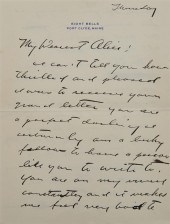 Thursday
EIGHT BELLS
PORT CLYDE, MAINE
My Dearest Alice:
I can't tell you how
thrilled and pleased
I was to receive your
grand letter. You are
a perfect darling I
certainly am a lucky
fellow to have a person
like you to write to.
You are on my mind
constantly and it makes
me feel very bad to